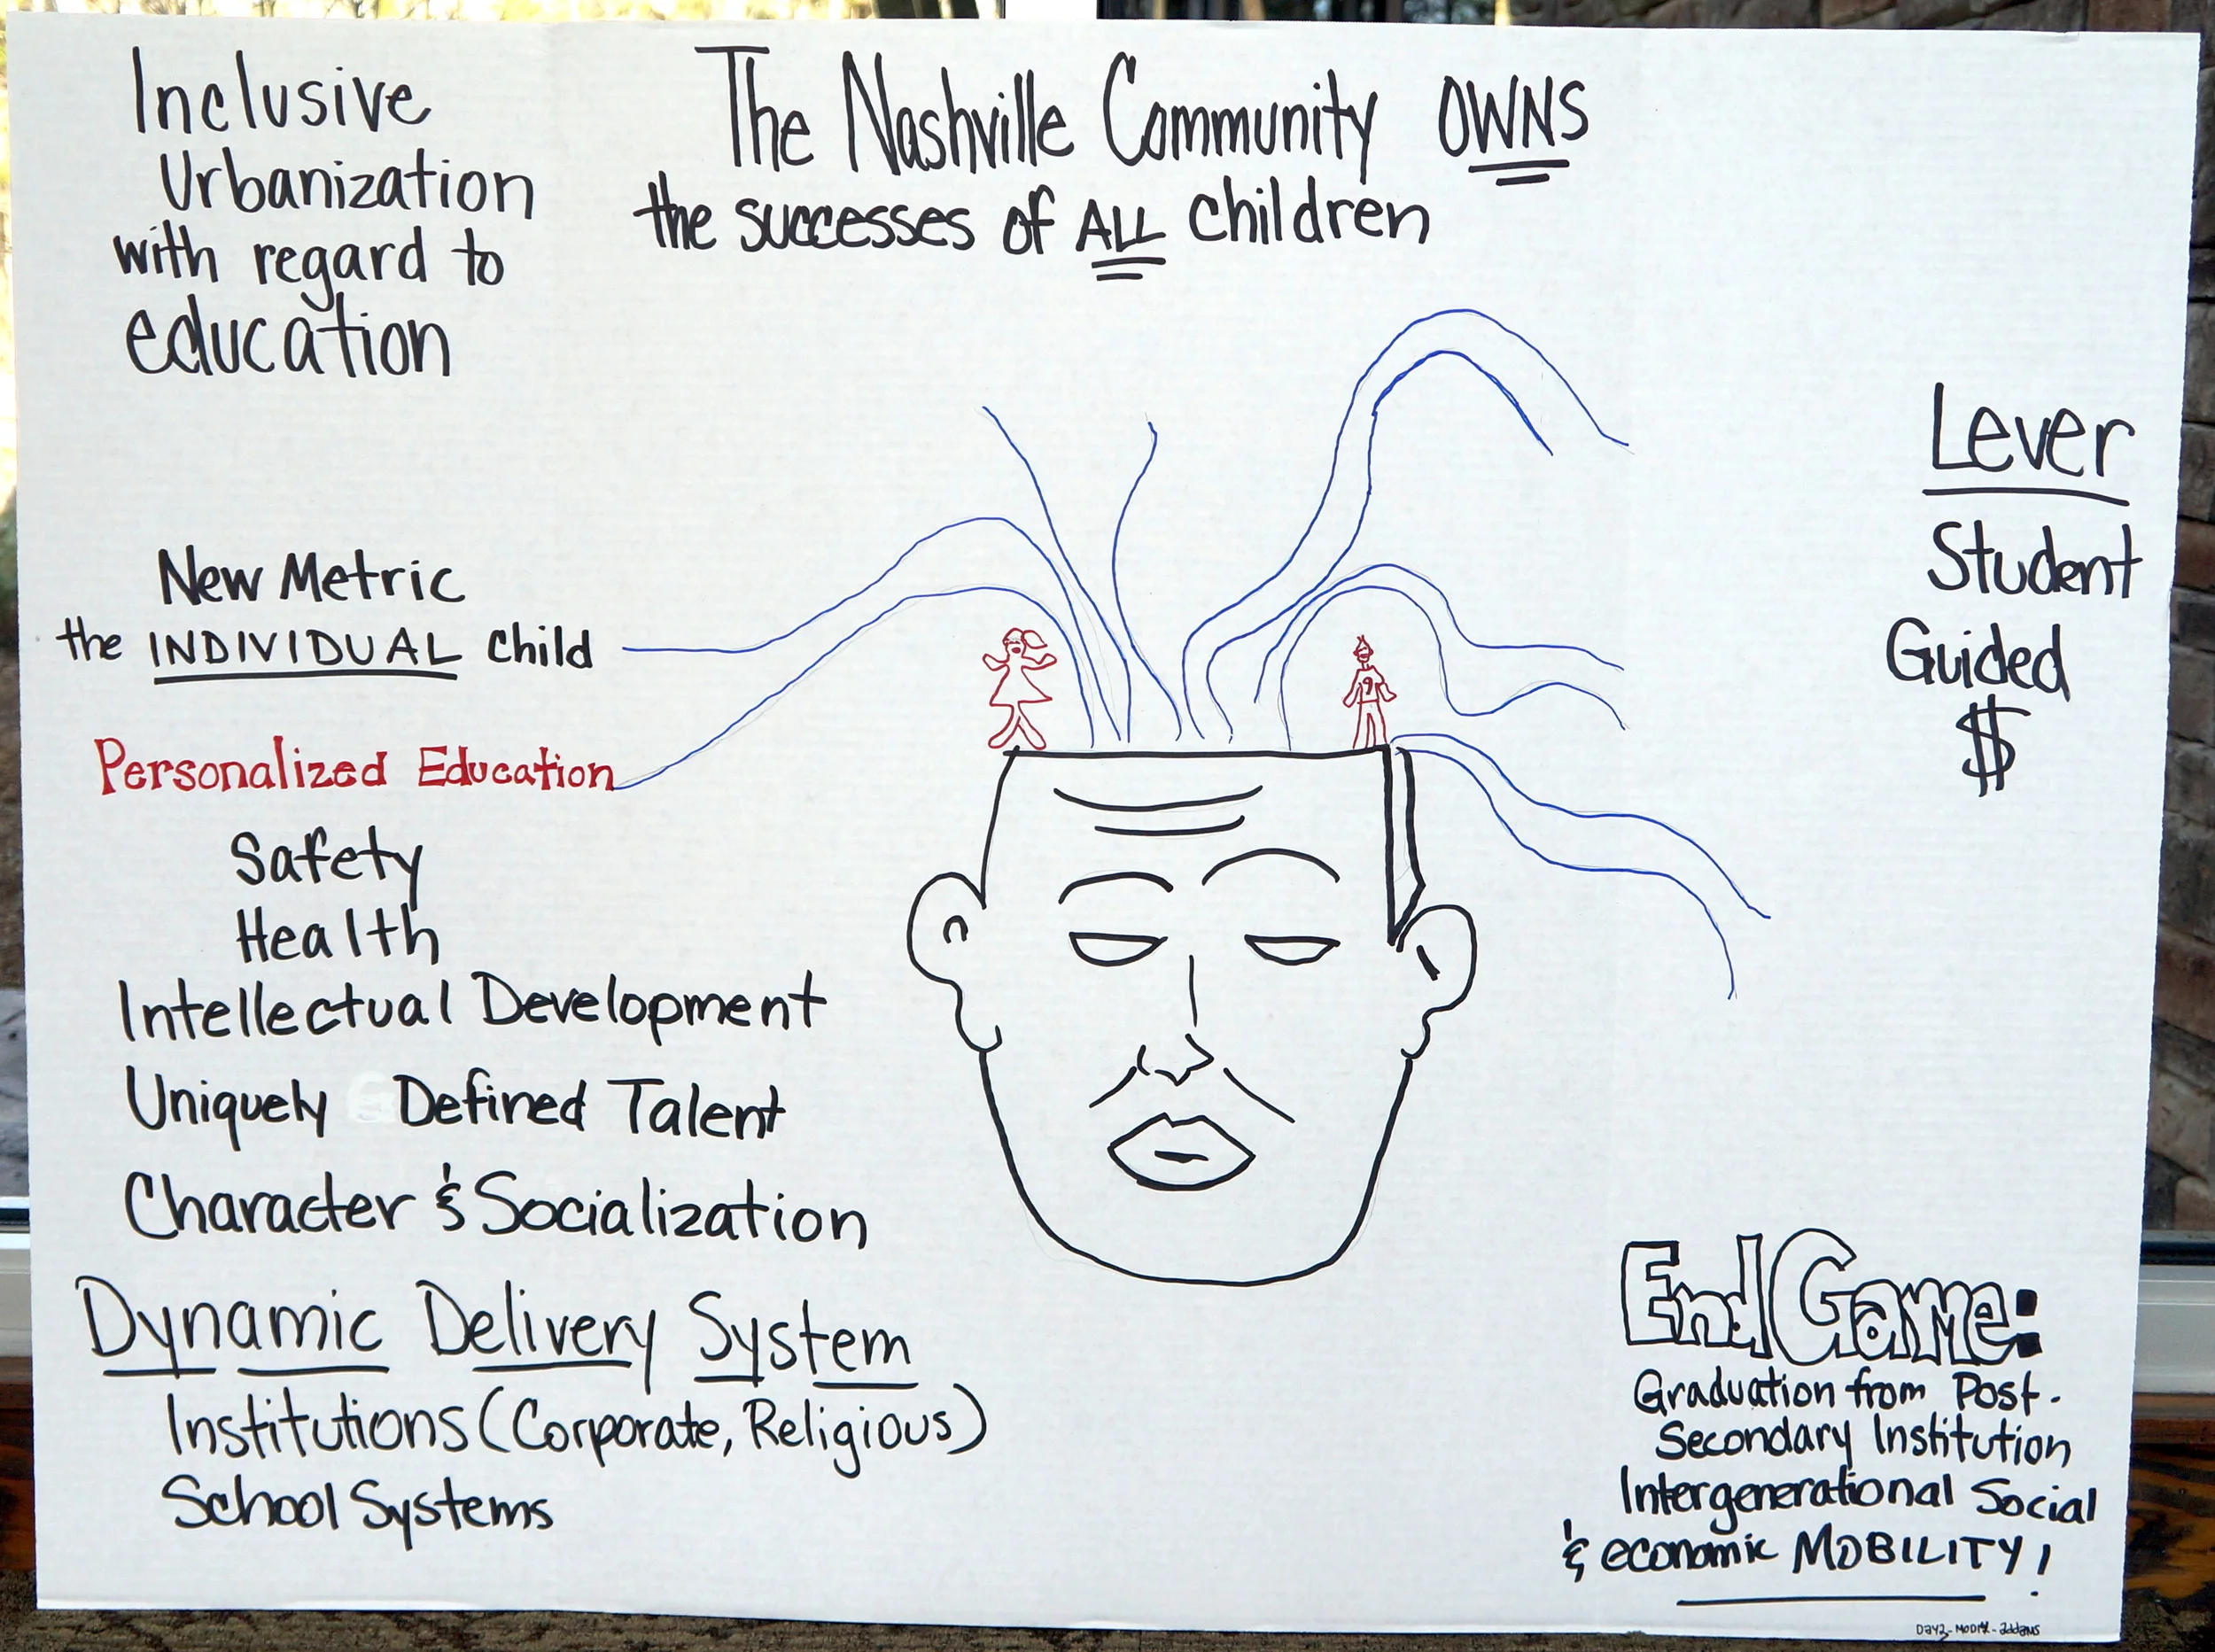 Inclusive
Urbanization
with regard to
education
The Nashville Community OWNS
the successes of ALL children
New Metric
the INDIVIDUAL child
Personalized Education
Safety
Health
Intellectual Development
Uniquely Defined Talent
Character & Socialization
Dynamic Delivery System
Institutions (Corporate, Religious)
School Systems
9
Lever
Student
Guided
$
EndGame:
Graduation from Post-
Secondary Institution
Intergenerational Social
& economic MOBILITY!